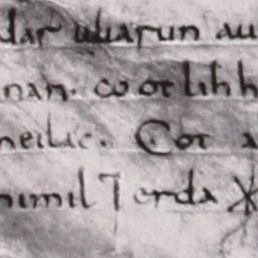 dar uuarun au
nan. cootlihh
heilac. Cot a
himil ⁊ erda ᛡ